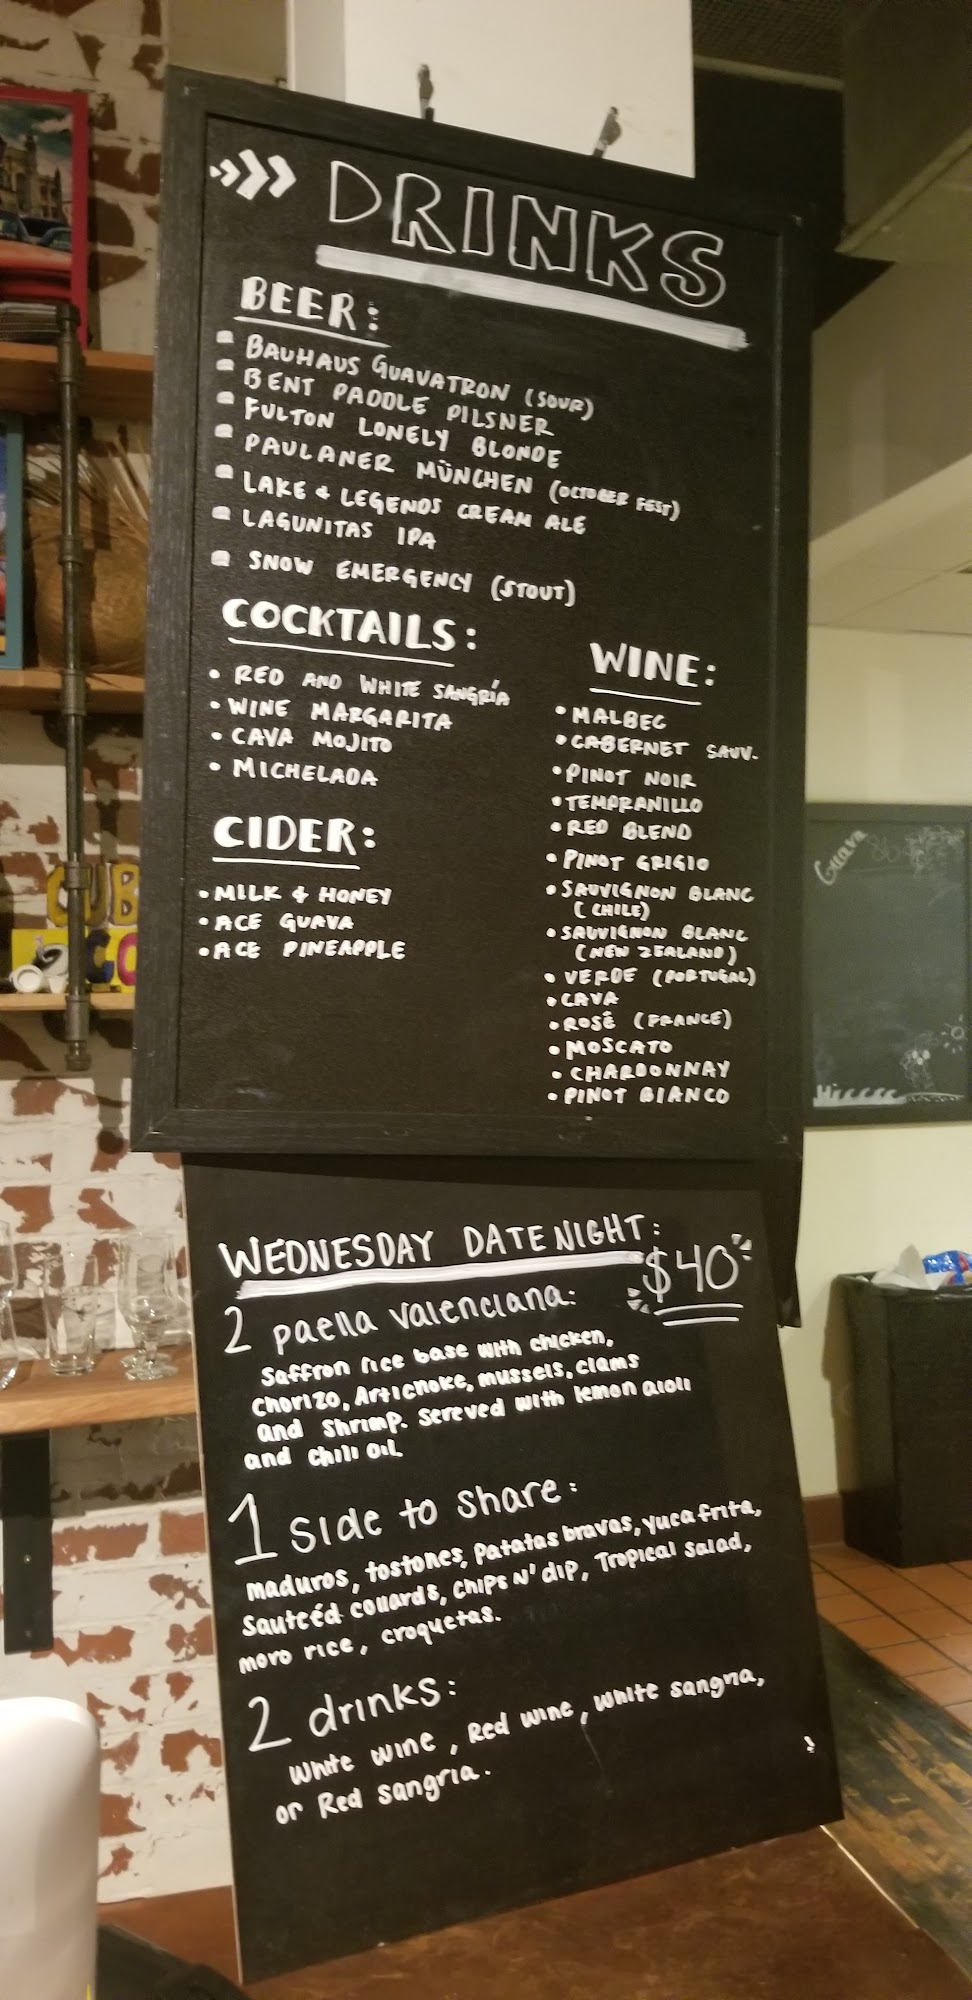 DRINKS
BEER:
BAUHAUS GUAVATRON (SOUR)
BENT PADDLE PILSNER
FULTON LONELY BLONDE
PAULANER MÜNCHEN (OCTOBER FEST)
LAKE & LEGENDS CREAM ALE
LAGUNITAS IPA
SNOW EMERGENCY (STOUT)
COCKTAILS:
• RED AND WHITE SANGRÍA
• WINE MARGARITA
• CAVA MOJITO
• MICHELADA
CIDER:
• MILK & HONEY
• ACE GUAVA
• ACE PINEAPPLE
WINE:
• MALBEC
• CABERNET SAUV.
• PINOT NOIR
• TEMPRANILLO
• RED BLEND
• PINOT GRIGIO
• SAUVIGNON BLANC
(CHILE)
• SAUVIGNON BLANC
(NEW ZEALAND)
• VERDE (PORTUGAL)
• CAVA
• ROSÉ (FRANCE)
• MOSCATO
• CHARDONNAY
• PINOT BIANCO
WEDNESDAY DATE NIGHT:
$40
2 paella valenciana:
Saffron rice base with chicken,
chorizo, Artichoke, mussels, clams
and shrimp. Sereved with lemon aioli
and chili oil
1 side to share:
maduros, tostones, Patatas bravas, yuca frita,
Sauteéd collards, Chips N' dip, Tropical salad,
moro rice, croquetas.
2 drinks:
White wine, Red wine, White sangria,
or Red sangria.
CUB
Guava